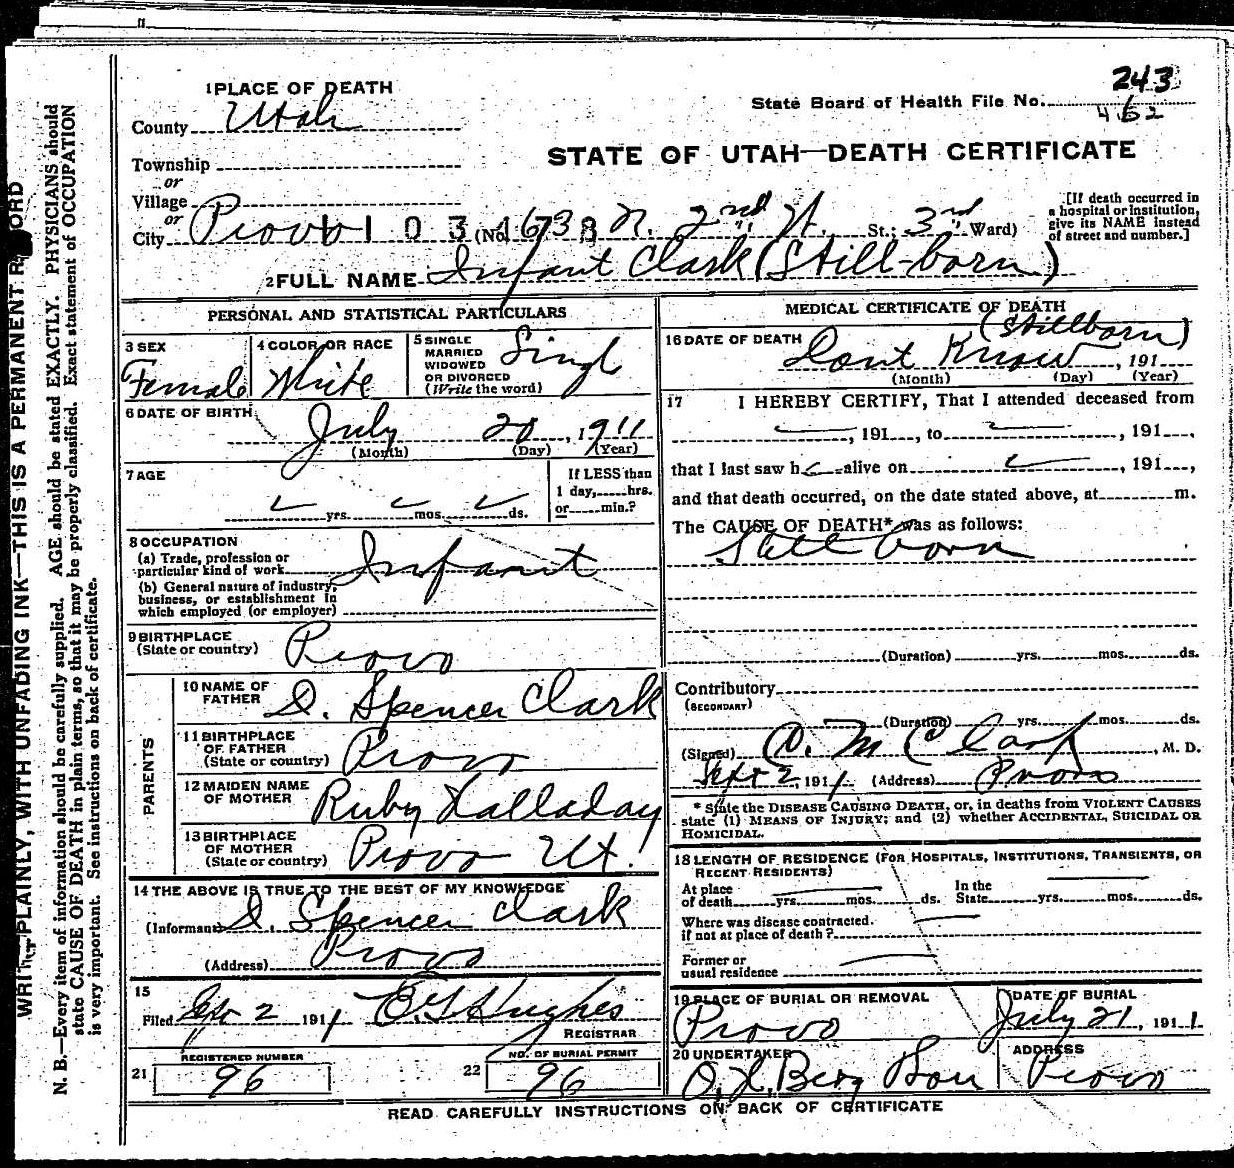 243
State Board of Health File No. 462
1 PLACE OF DEATH
County Utah
STATE OF UTAH—DEATH CERTIFICATE
Township
or
Village
or
City Provo (No. 163 N. 2nd W. St.; 3rd Ward)
[If death occurred in a hospital or institution, give its NAME instead of street and number.]
2 FULL NAME Infant Clark (Still-born)
PERSONAL AND STATISTICAL PARTICULARS
3 SEX
Female
4 COLOR OR RACE
White
5 SINGLE MARRIED WIDOWED OR DIVORCED (Write the word)
Singl
6 DATE OF BIRTH
July 20, 1911
(Month) (Day) (Year)
7 AGE
yrs. mos. ds.
If LESS than 1 day, hrs. or min.?
8 OCCUPATION
(a) Trade, profession or particular kind of work Infant
(b) General nature of industry, business, or establishment in which employed (or employer)
9 BIRTHPLACE
(State or country) Provo
PARENTS
10 NAME OF FATHER D. Spencer Clark
11 BIRTHPLACE OF FATHER (State or country) Provo
12 MAIDEN NAME OF MOTHER Ruby Halladay
13 BIRTHPLACE OF MOTHER (State or country) Provo Ut.
14 THE ABOVE IS TRUE TO THE BEST OF MY KNOWLEDGE
(Informant) D. Spencer Clark
(Address) Provo
15
Filed Sep 2 1911 Hughes
REGISTRAR
REGISTERED NUMBER
21 96
NO. OF BURIAL PERMIT
22 96
MEDICAL CERTIFICATE OF DEATH
16 DATE OF DEATH (Stillborn)
Dont Know, 191
(Month) (Day) (Year)
17 I HEREBY CERTIFY, That I attended deceased from
, 191 , to , 191 ,
that I last saw h alive on , 191 ,
and that death occurred, on the date stated above, at m.
The CAUSE OF DEATH* was as follows:
Still born
(Duration) yrs. mos. ds.
Contributory
(SECONDARY)
(Duration) yrs. mos. ds.
(Signed) , M. D.
Sept 2, 1911 (Address) Provo
* State the DISEASE CAUSING DEATH, or, in deaths from VIOLENT CAUSES
state (1) MEANS OF INJURY; and (2) whether ACCIDENTAL, SUICIDAL OR
HOMICIDAL.
18 LENGTH OF RESIDENCE (FOR HOSPITALS, INSTITUTIONS, TRANSIENTS, OR
RECENT RESIDENTS)
At place of death yrs. mos. ds. In the State yrs. mos. ds.
Where was disease contracted.
if not at place of death?
Former or
usual residence
19 PLACE OF BURIAL OR REMOVAL
Provo
DATE OF BURIAL
July 21, 1911
20 UNDERTAKER
Berg Son
ADDRESS
Provo
READ CAREFULLY INSTRUCTIONS ON BACK OF CERTIFICATE
PLAINLY, WITH UNFADING INK—THIS IS A PERMANENT RECORD
N. B.—Every item of information should be carefully supplied. AGE should be stated EXACTLY. PHYSICIANS should
state CAUSE OF DEATH in plain terms, so that it may be properly classified. Exact statement of OCCUPATION
is very important. See instructions on back of certificate.